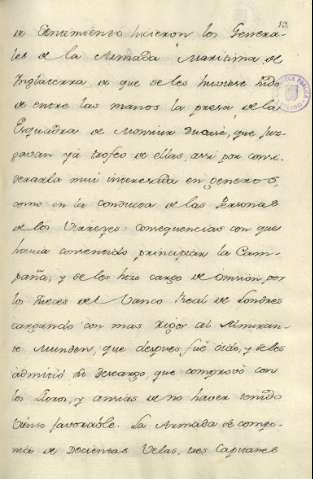 de sentimiento hicieron los Genera-
les de la Armada Maritima de
Inglaterra de que se les huviese hido
de entre las manos la presa de la
Esquadra de Monsieur Ducasse, que juz-
gavan yá trofeo de ellas, assi por consi-
derarla mui interesada en generos,
como en la conducta de las Personas
de los Virreyes: consequencias con que
havia consentido principiar la Cam-
paña, y se les hizo cargo de omision por
los Jueces del Vanco Real de Londres
cargando con mas rigor al Almiran-
te Munden, que despues fué oido, y se les
admitió su descargo, que comprovó con
los Libros, y
de no haver tenido
viento favorable. La Armada se compo-
nia de Doscientas Velas, tres Capitanes